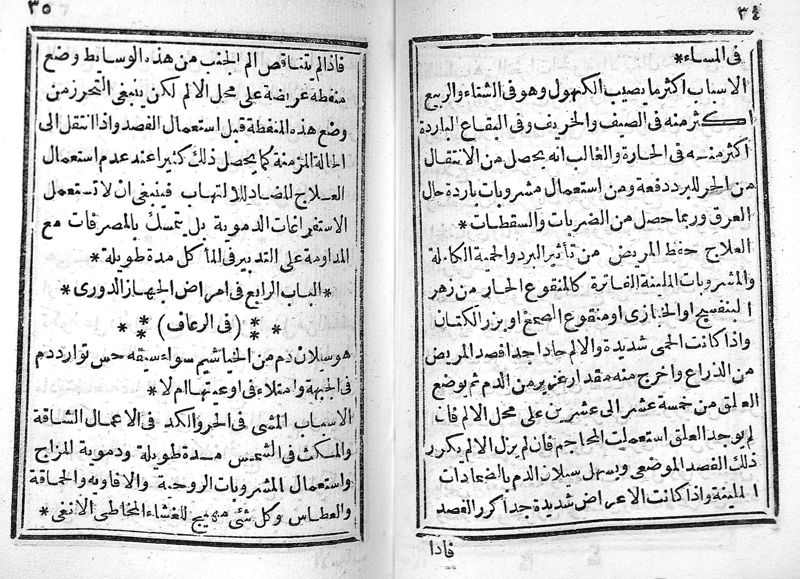 ٣٤
فى المساء*
الاسباب اكثر ما يصيب الكهول وهو فى الشتاء والربيع
اكثر منه فى الصيف والخريف وفى البقاع الباردة
اكثر منه فى الحارة والغالب انه يحصل من الانتقال
من الحر للبرد دفعة ومن استعمال مشروبات باردة حال
العرق وربما حصل من الضربات والسقطات*
العلاج حفظ المريض من تأثير البرد والحمية الكاملة
والمشروبات الملينة الفاترة كالمنقوع الحار من زهر
البنفسج او الخبازى او منقوع الصمغ او بزر الكتان
واذا كانت الحمى شديدة والالم حادا جدا فصد المريض
من الذراع واخرج منه مقدار غزير من الدم ثم يوضع
العلق من خمسة عشر الى عشرين على محل الالم فان
لم يوجد العلق استعملت المحاجم فان لم يزل الالم يكرر
ذلك الفصد الموضعى ويسهل سيلان الدم بالضمادات
الملينة واذا كانت الاعراض شديدة جدا كرر الفصد
فاذا
٣٥
فاذا لم يتناقص الم الجنب من هذه الوسائط وضع
منفطة عريضة على محل الالم لكن ينبغى التحرز من
وضع هذه المنفطة قبل استعمال الفصد واذا انتقل الى
الحالة المزمنة كما يحصل ذلك كثيرا عند عدم استعمال
العلاج المضاد للالتهاب فينبغى ان لا تستعمل
الاستفراغات الدموية بل يتمسك بالمصرفات مع
المداومة على التدبير فى المأكل مدة طويلة*
*الباب الرابع فى امراض الجهاز الدورى*
* ** (فى الرعاف) ** *
هو سيلان دم من الخياشيم سواء سبقه حس توارد دم
فى الجبهة وامتلاء فى اوعيتها ام لا*
الاسباب المشى فى الحر والكد فى الاعمال الشاقة
والمكث فى الشمس مدة طويلة ودموية المزاج
واستعمال المشروبات الروحية والافاويه والحماقة
والعطاس وكل شئ مهيج للغشاء المخاطى الانفى*